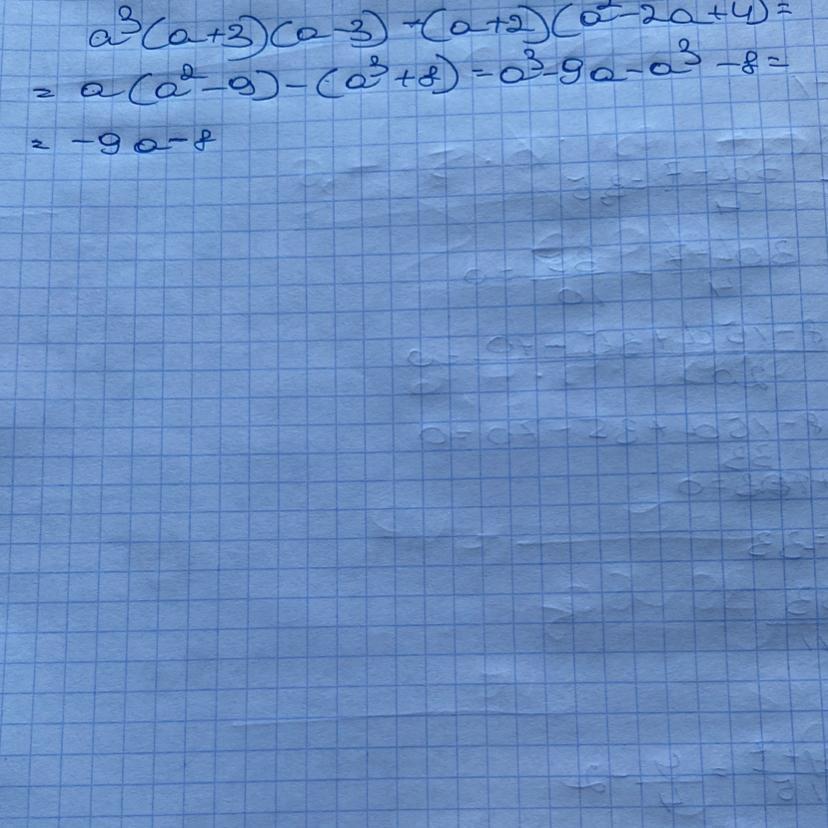 a³(a+3)(a-3) -(a+2)(a²-2a+4)=
= a(a²-9)-(a³+8)=a³-9a-a³-8=
= -9a-8